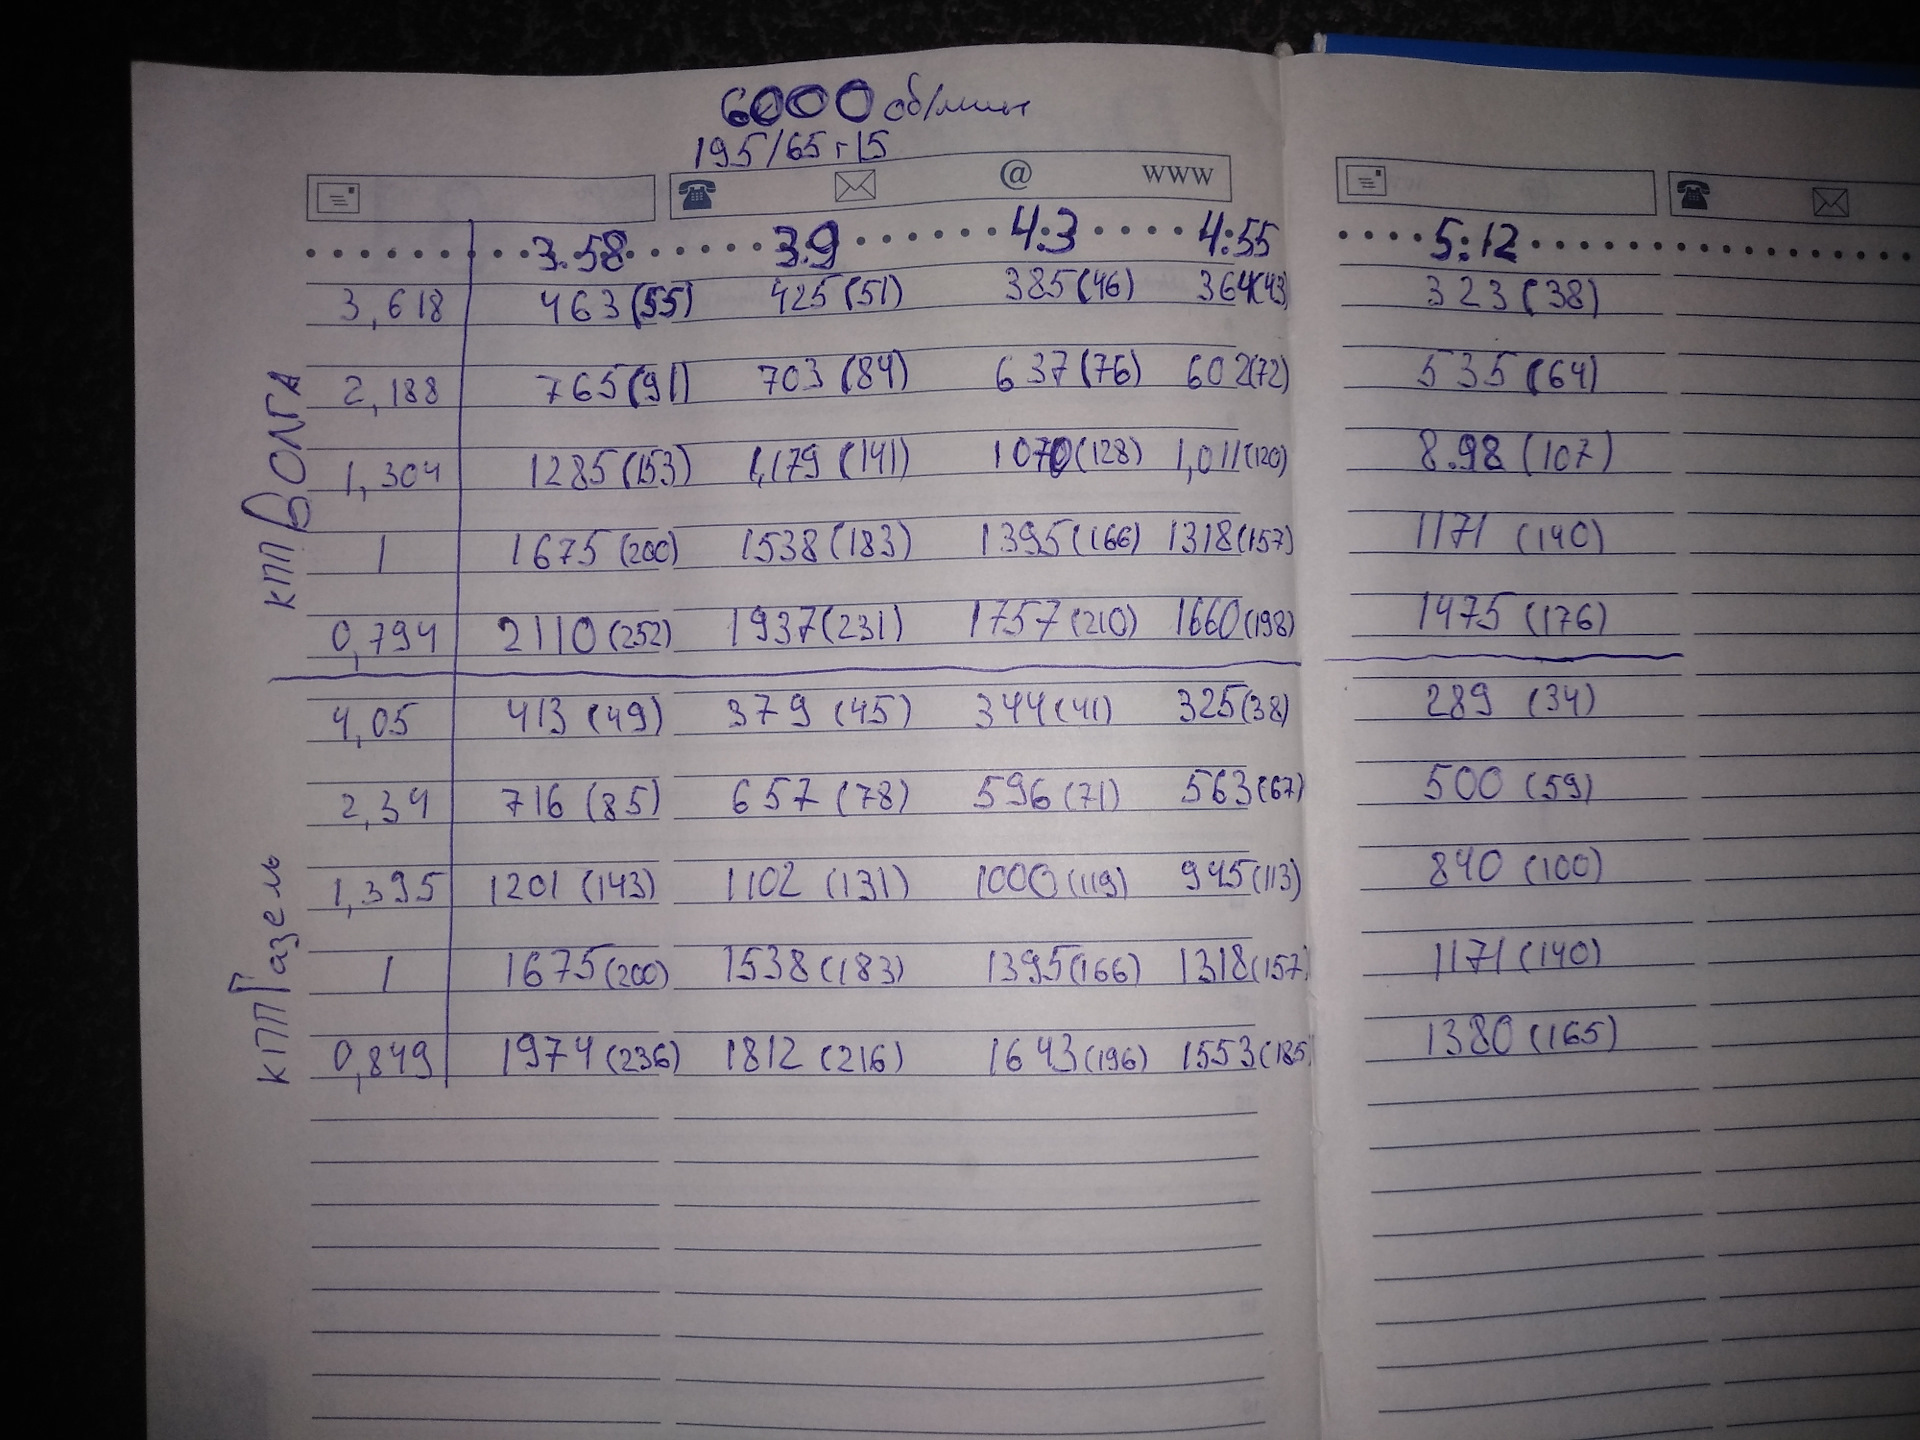 6000 об/мин
195/65 r15
@ www
3.58 3.9 4.3 4.55 5.12
3,618 463(55) 425(51) 385(46) 364(43) 323(38)
КПП ВОЛГА
2,188 765(91) 703(84) 637(76) 602(72) 535(64)
1,304 1285(153) 1,179(141) 1070(128) 1,011(120) 8.98(107)
1 1675(200) 1538(183) 1395(166) 1318(157) 1171(140)
0,794 2110(252) 1937(231) 1757(210) 1660(198) 1475(176)
4,05 413(49) 379(45) 344(41) 325(38) 289(34)
КПП Газель
2,34 716(85) 657(78) 596(71) 563(67) 500(59)
1,395 1201(143) 1102(131) 1000(119) 945(113) 840(100)
1 1675(200) 1538(183) 1395(166) 1318(157) 1171(140)
0,849 1974(236) 1812(216) 1643(196) 1553(185) 1380(165)